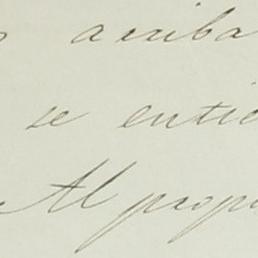 arriba
se entie
Al propi